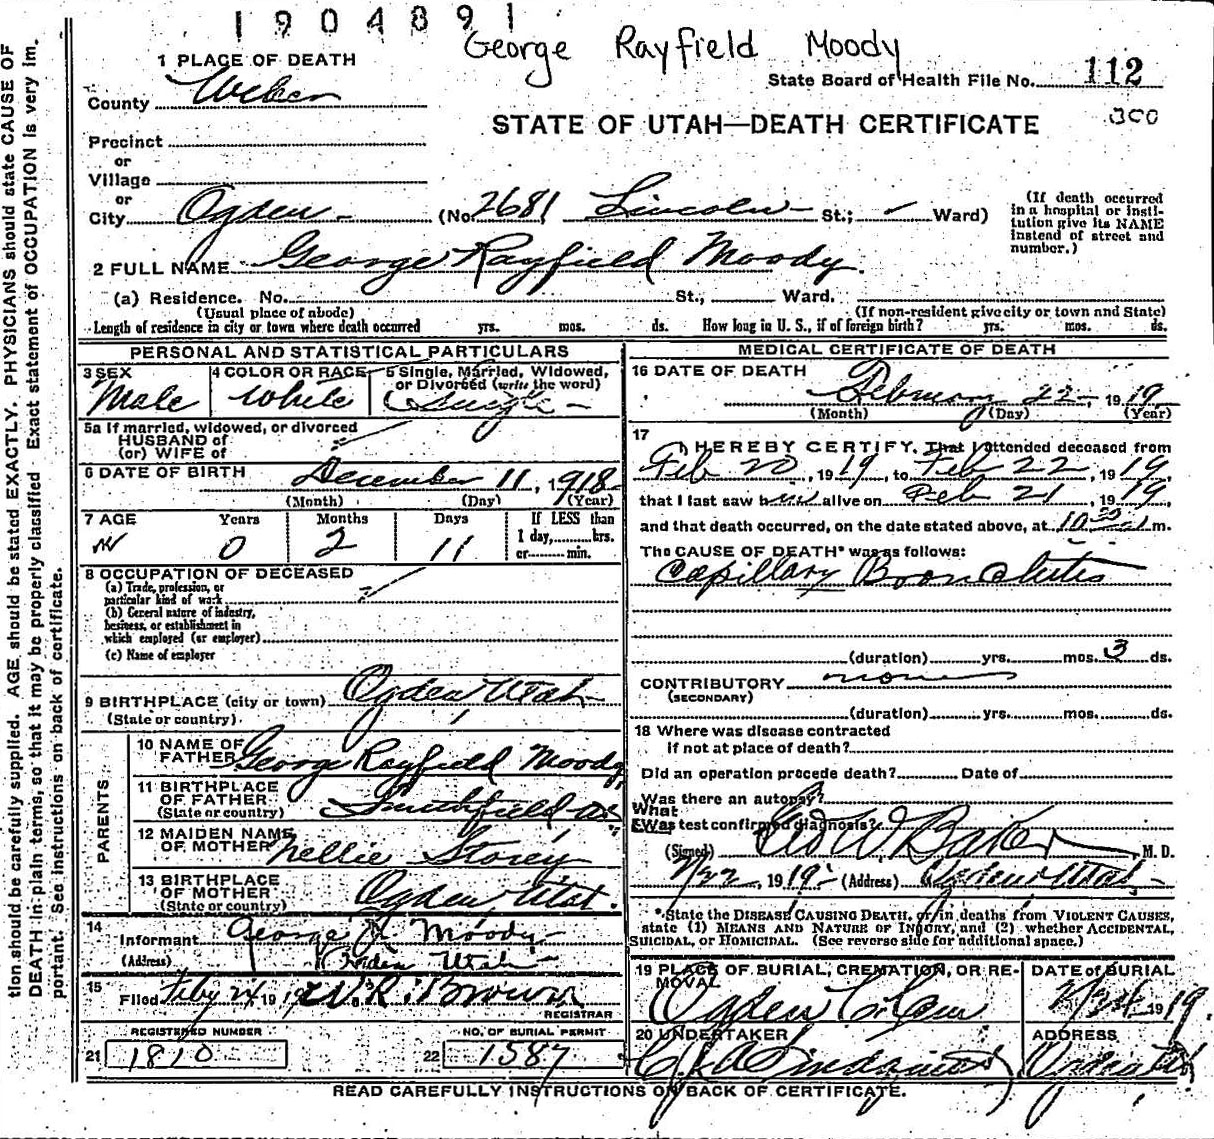 1904891
George Rayfield Moody
1 PLACE OF DEATH
State Board of Health File No. 112
County Weber
300
STATE OF UTAH—DEATH CERTIFICATE
Precinct
or
Village
or
City Ogden (No. 2681 Lincoln St.; Ward)
(If death occurred in a hospital or institution give its NAME instead of street and number.)
2 FULL NAME George Rayfield Moody
(a) Residence. No. St., Ward.
(Usual place of abode) (If non-resident give city or town and State)
Length of residence in city or town where death occurred yrs. mos. ds. How long in U. S., if of foreign birth? yrs. mos. ds.
PERSONAL AND STATISTICAL PARTICULARS
3 SEX 4 COLOR OR RACE 5 Single, Married, Widowed,
or Divorced (write the word)
Male White Single
5a If married, widowed, or divorced
HUSBAND of
(or) WIFE of
6 DATE OF BIRTH
December 11, 1918
(Month) (Day) (Year)
7 AGE Years Months Days If LESS than
1 day, hrs.
or min.
0 2 11
8 OCCUPATION OF DECEASED
(a) Trade, profession, or
particular kind of work
(b) General nature of industry,
business, or establishment in
which employed (or employer)
(c) Name of employer
9 BIRTHPLACE (city or town) Ogden Utah
(State or country)
PARENTS
10 NAME OF
FATHER George Rayfield Moody
11 BIRTHPLACE
OF FATHER
(State or country) Smithfield
12 MAIDEN NAME
OF MOTHER Nellie Storey
13 BIRTHPLACE
OF MOTHER
(State or country) Ogden Utah.
14
Informant George R. Moody
(Address) Ogden Utah
15
Filed Feby 24 1919 W. R. Brown
REGISTRAR
REGISTERED NUMBER NO. OF BURIAL PERMIT
21 1810 22 1587
MEDICAL CERTIFICATE OF DEATH
16 DATE OF DEATH
February 22, 1919
(Month) (Day) (Year)
17
I HEREBY CERTIFY, That I attended deceased from
Feb 20, 1919, to Feb 22, 1919,
that I last saw him alive on Feb 21, 1919,
and that death occurred, on the date stated above, at 10 m.
The CAUSE OF DEATH* was as follows:
Capillary Bronchitis
(duration) yrs. mos. 3 ds.
CONTRIBUTORY none
(SECONDARY)
(duration) yrs. mos. ds.
18 Where was disease contracted
if not at place of death?
Did an operation precede death? Date of
Was there an autopsy?
What test confirmed diagnosis?
(Signed) W Baker M. D.
2/22, 1919 (Address) Ogden Utah
*State the DISEASE CAUSING DEATH, or in deaths from VIOLENT CAUSES,
state (1) MEANS AND NATURE OF INJURY, and (2) whether ACCIDENTAL,
SUICIDAL, or HOMICIDAL. (See reverse side for additional space.)
19 PLACE OF BURIAL, CREMATION, OR RE-
MOVAL
DATE of BURIAL
Ogden 1919.
20 UNDERTAKER ADDRESS
Ogden
READ CAREFULLY INSTRUCTIONS ON BACK OF CERTIFICATE.
tion should be carefully supplied. AGE should be stated EXACTLY. PHYSICIANS should state CAUSE OF
DEATH in plain terms, so that it may be properly classified. Exact statement of OCCUPATION is very im-
portant. See instructions on back of certificate.